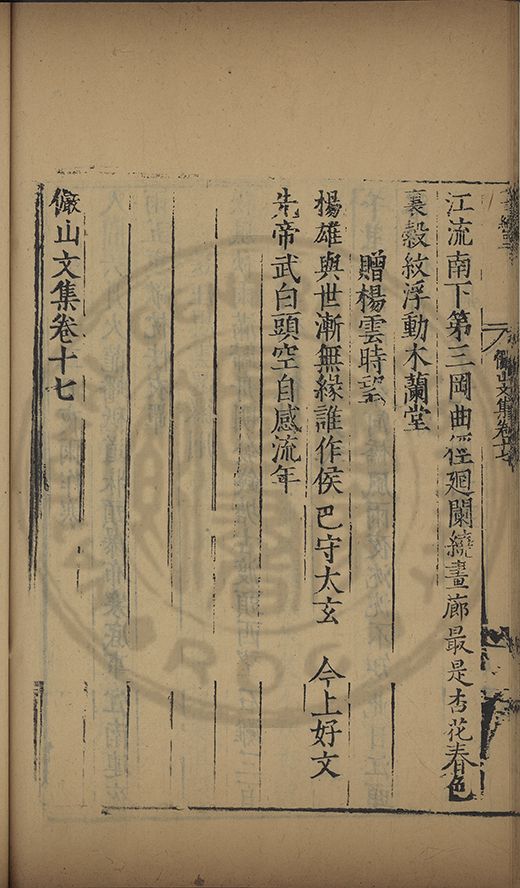 江流南下第三岡曲徑廻闌繞畫廊最是杏花春色
裏縠紋浮動木蘭堂
贈楊雲時望
楊雄與世漸無緣誰作侯巴守太玄　今上好文
先帝武白頭空自感流年
儼山文集卷十七